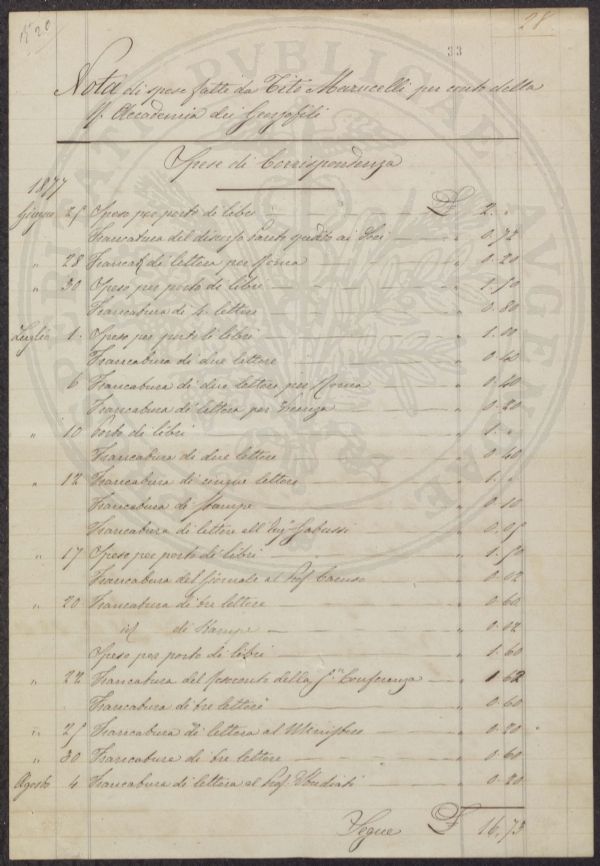 N° 20
28
33
Nota di spese fatte da Tito Marucelli per conto della
R. Accademia dei Georgofili
Spese di Corrispondenza
1877
Giugno 25 Spese per porto di libri £ 2. "
Francatura del discorso spedito ai Soci " 0.72
" 28 Francat di lettera per Roma " 0.20
" 30 Spese per porto di libri " 1.50
Francatura di 4 lettere " 0.80
Luglio 1. Spese per porto di libri " 1.00
Francatura di due lettere " 0.40
6 Francatura di due lettere per Roma " 0.40
Francatura di lettera per Firenza " 0.20
" 10 Porto di libri " 1. "
Francatura di due lettere " 0.40
" 12 Francatura di cinque lettere " 1. "
Francatura di Stampe " 0.10
Francatura di lettere all' Ing. Gabussi " 0.05
" 17 Spese per porto di libri " 1.50
Francatura del Giornale al Prof Caruso " 0.02
" 20 Francatura di tre lettere " 0.60
id di Stampe " 0.02
Spese per porto di libri " 1.60
" 22 Francatura del Resoconto della Conferenza " 1 62
Francatura di tre lettere " 0.60
" 25 Francatura di lettera al Ministero " 0.20
" 30 Francature di tre lettere " 0.60
Agosto 4 Francatura di lettera al Prof. " 0.20
Segue £ 16.73